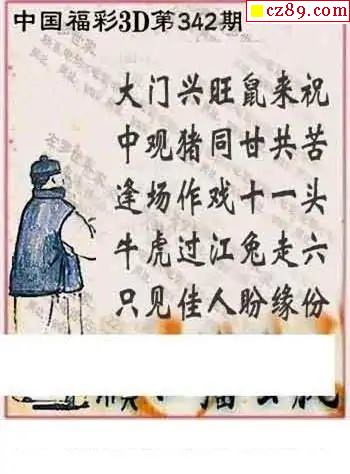 cz89.com
中国福彩3D第342期
大门兴旺鼠来祝
中观猪同甘共苦
逢场作戏十一头
牛虎过江兔走六
只见佳人盼缘份